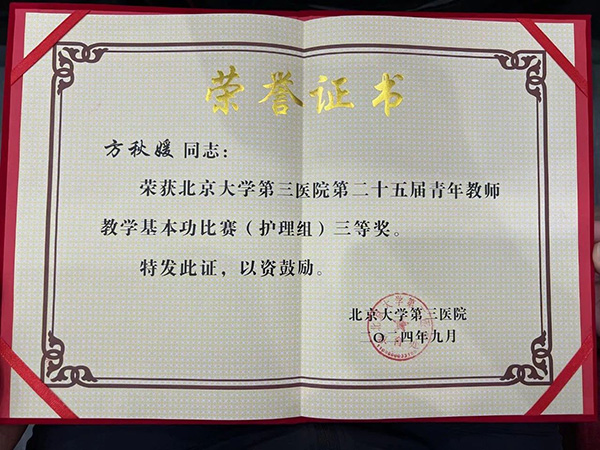 荣誉证书
方秋媛 同志：
荣获北京大学第三医院第二十五届青年教师
教学基本功比赛（护理组）三等奖。
特发此证，以资鼓励。
北京大学第三医院
二〇二四年九月